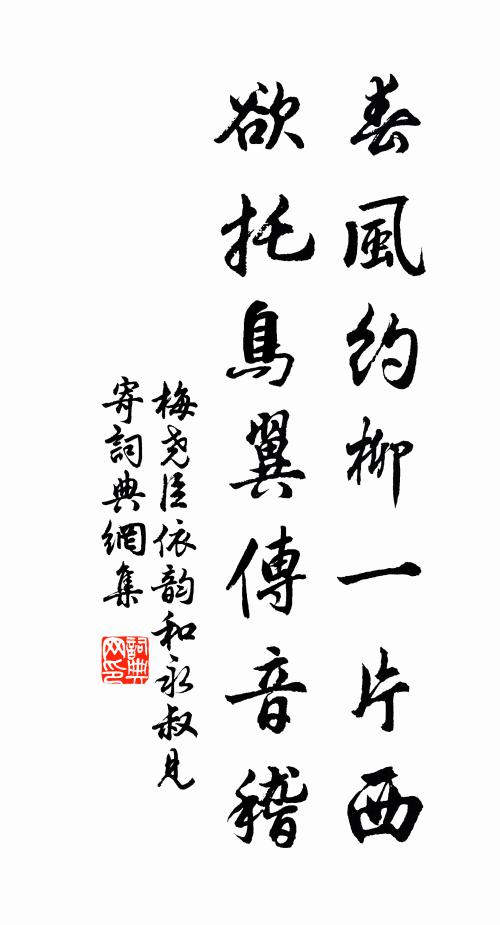 春風約柳一片西
欲托鳥翼傳音稽
梅堯臣依韵和永叔見
寄詞典網集
詞典
网印